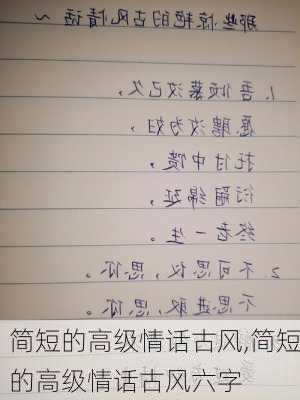 那些惊艳的古风情话～
1. 吾倾慕汝已久，
愿聘汝为妇，
托付中馈，
衍嗣绵延，
终老一生。
2. 不可思议，思你。
不思进取，思你。
简短的高级情话古风,简短
的高级情话古风六字